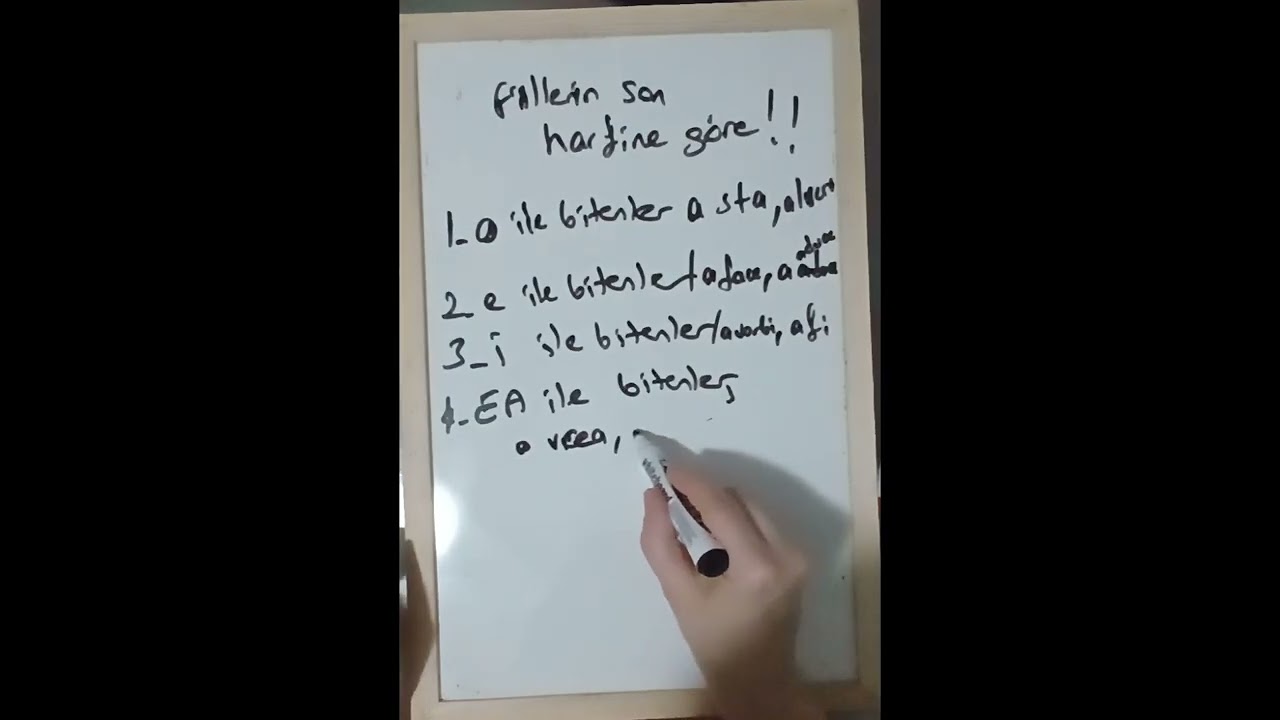 fiillerin son
harfine göre!!
1_a ile bitenler a sta,
2_e ile bitenler/a face, a aduce
3_î ile bitenler/a vorbi, a fi
4_EA ile bitenler
a vrea,